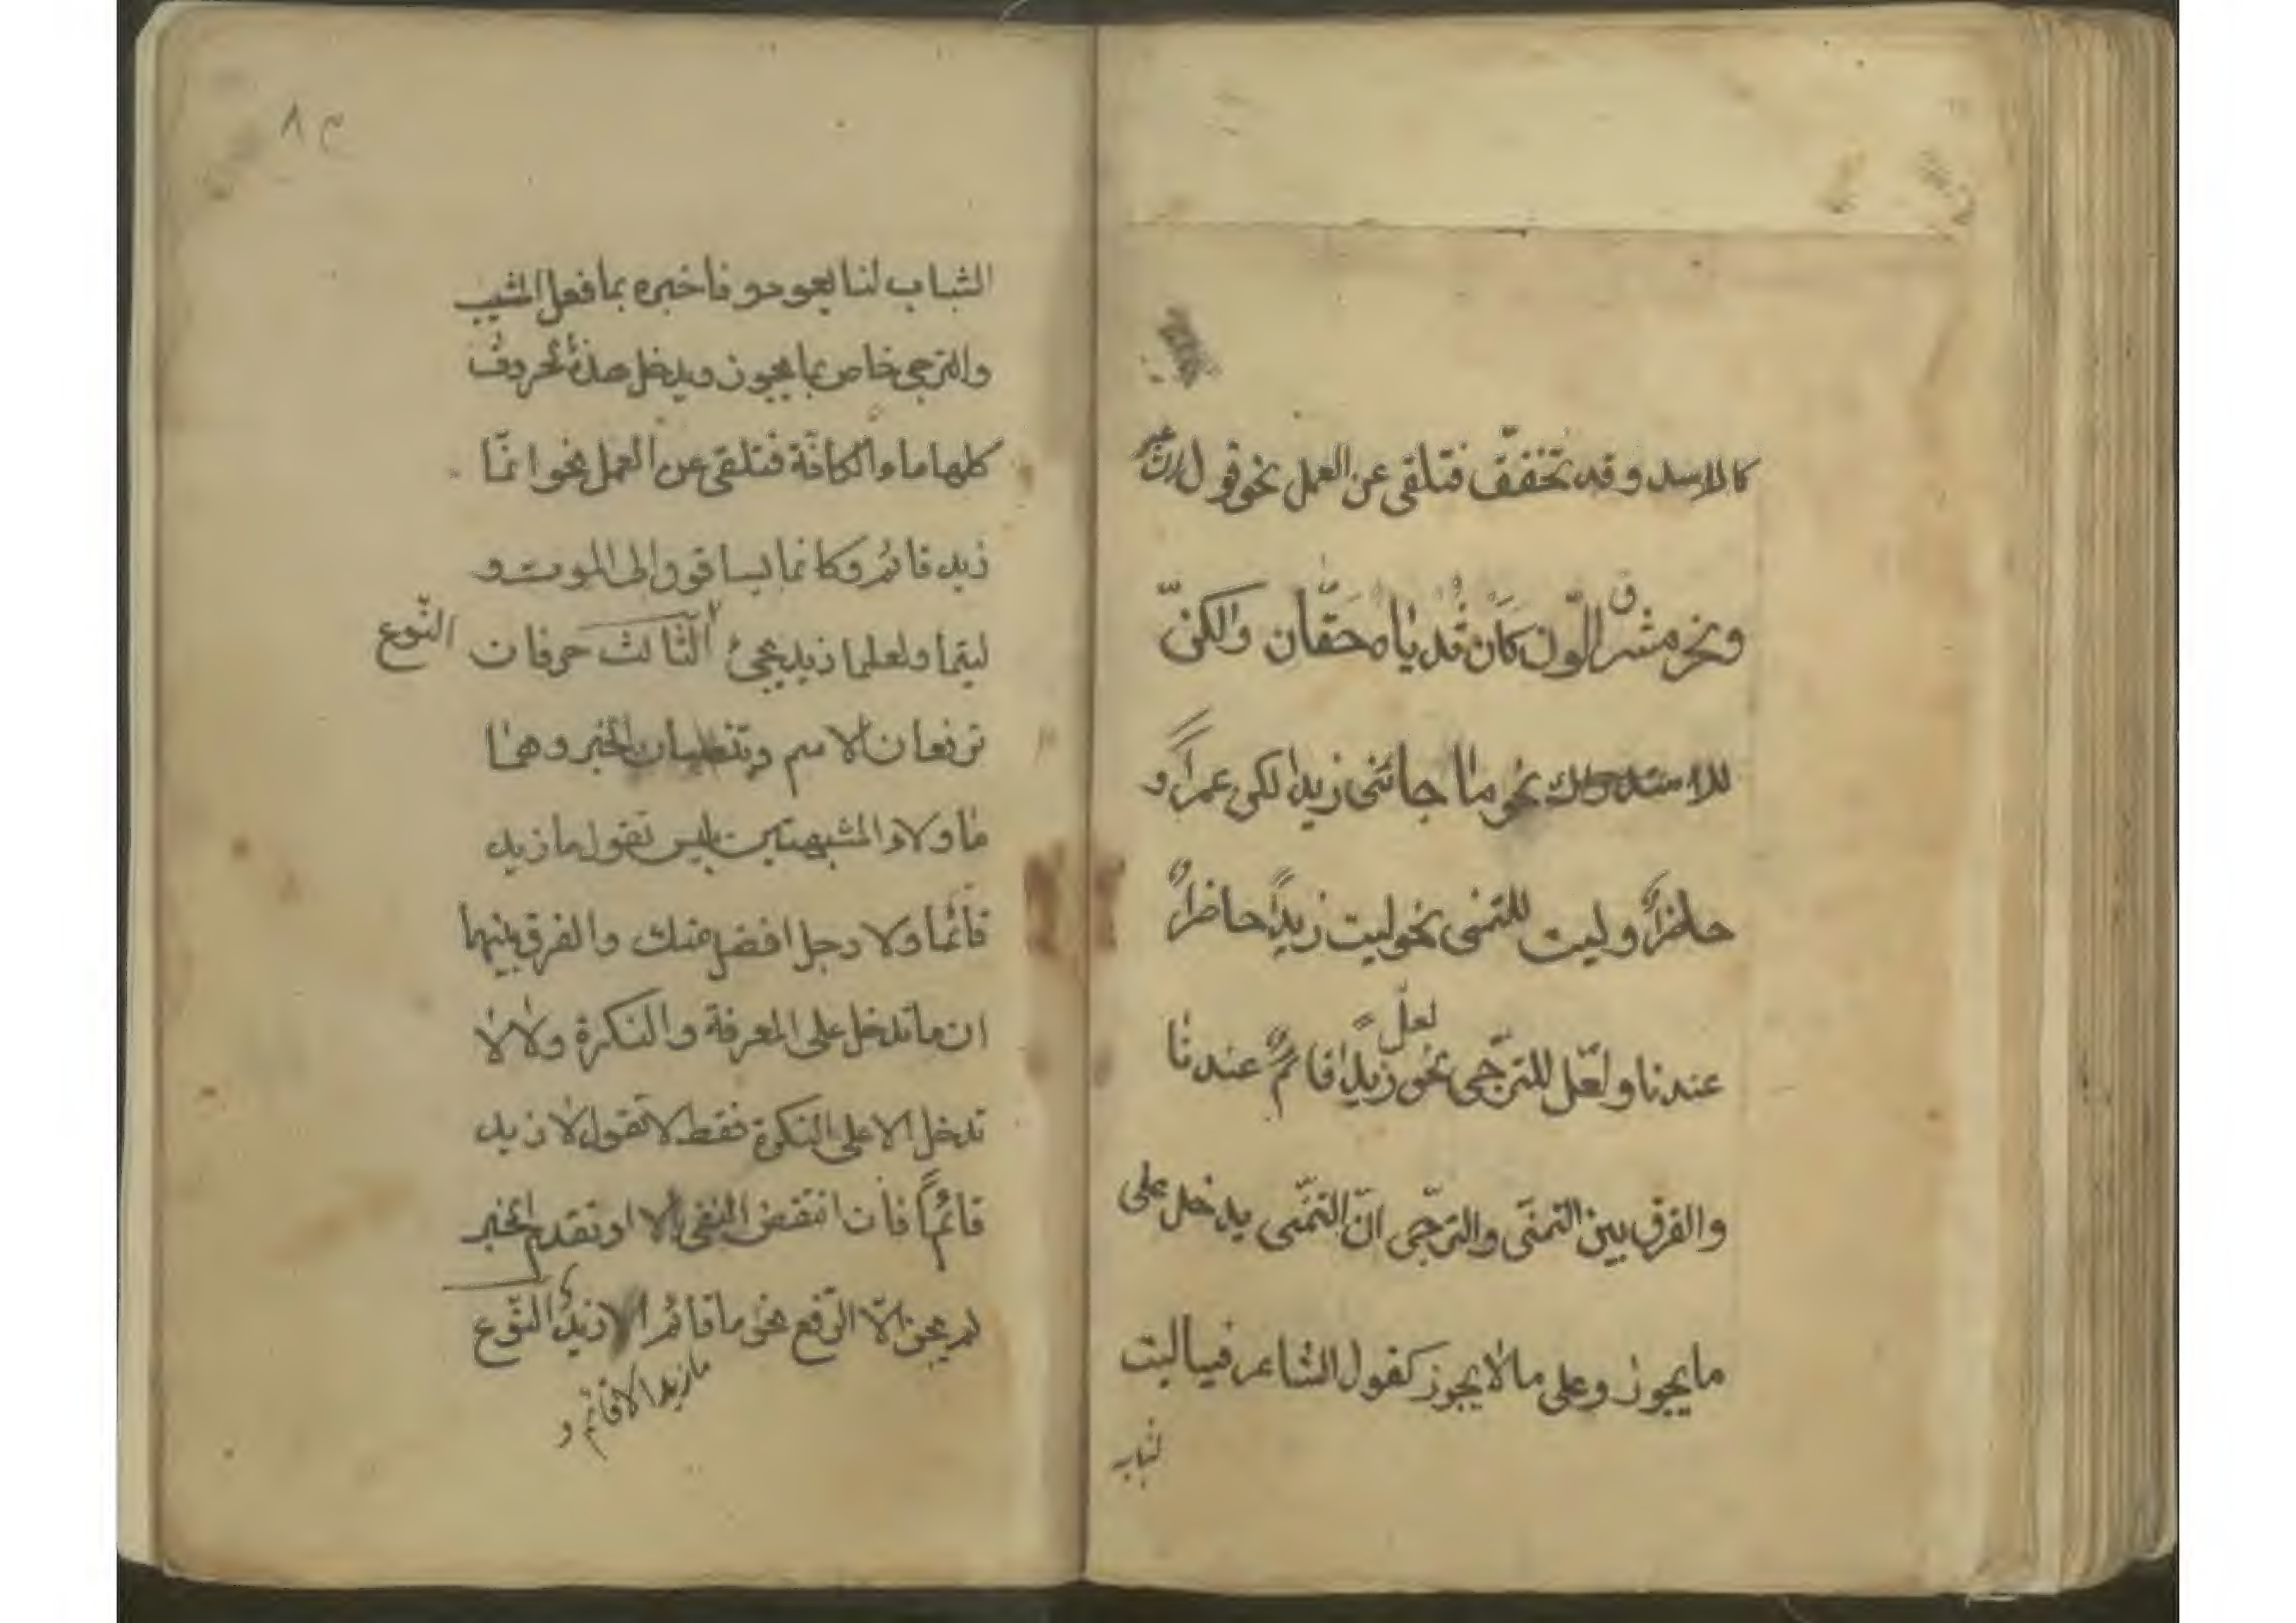 كالاسد وقد تخفف فتلقى عن العمل نحو قول
ونحر مشرق اللون كان ثدياه حقّان ولكنّ
للاستدراك نحو ما جائنى زيد لكن عمراً و
حاضرٌ وليت للتمنى نحو ليت زيداً حاضرٌ
عندنا ولعّل للترّجى نحو لعلّ زيداً قائمٌ عندنا
والفرق بين التمنّى والترجّى انّ التمنّى يدخل على
ما يجوز وعلى ما لا يجوز كقول الشاعر فياليت
لشباب
٨
الشباب لنا يعود فاخبره بما فعل المشيب
والترجى خاص بما يجوز ويدخل هذه الحروف
كلها ماء الكافّة فتلقى عن العمل نحو انمّا
زيد قائم وكانما يساقون الى الموت و
ليتما ولعلما زيد يجئ النّوع الثّالث حرفان
ترفعان الاسم وتنصبان الخبر وهما
ما ولاء المشبهتين بليس تقول ما زيد
قائما ولا رجل افضل منك والفرق بينهما
ان ما تدخل على المعرفة والنكرة ولا لا
تدخل الا على النكرة فقط لا تقول لا زيد
قائماً فان انتقض النفى بالا او تقدم الخبر
لم يجز الّا الرّفع نحو ما قائم الا زيدٌ النّوع
ما زيد الا قائم و